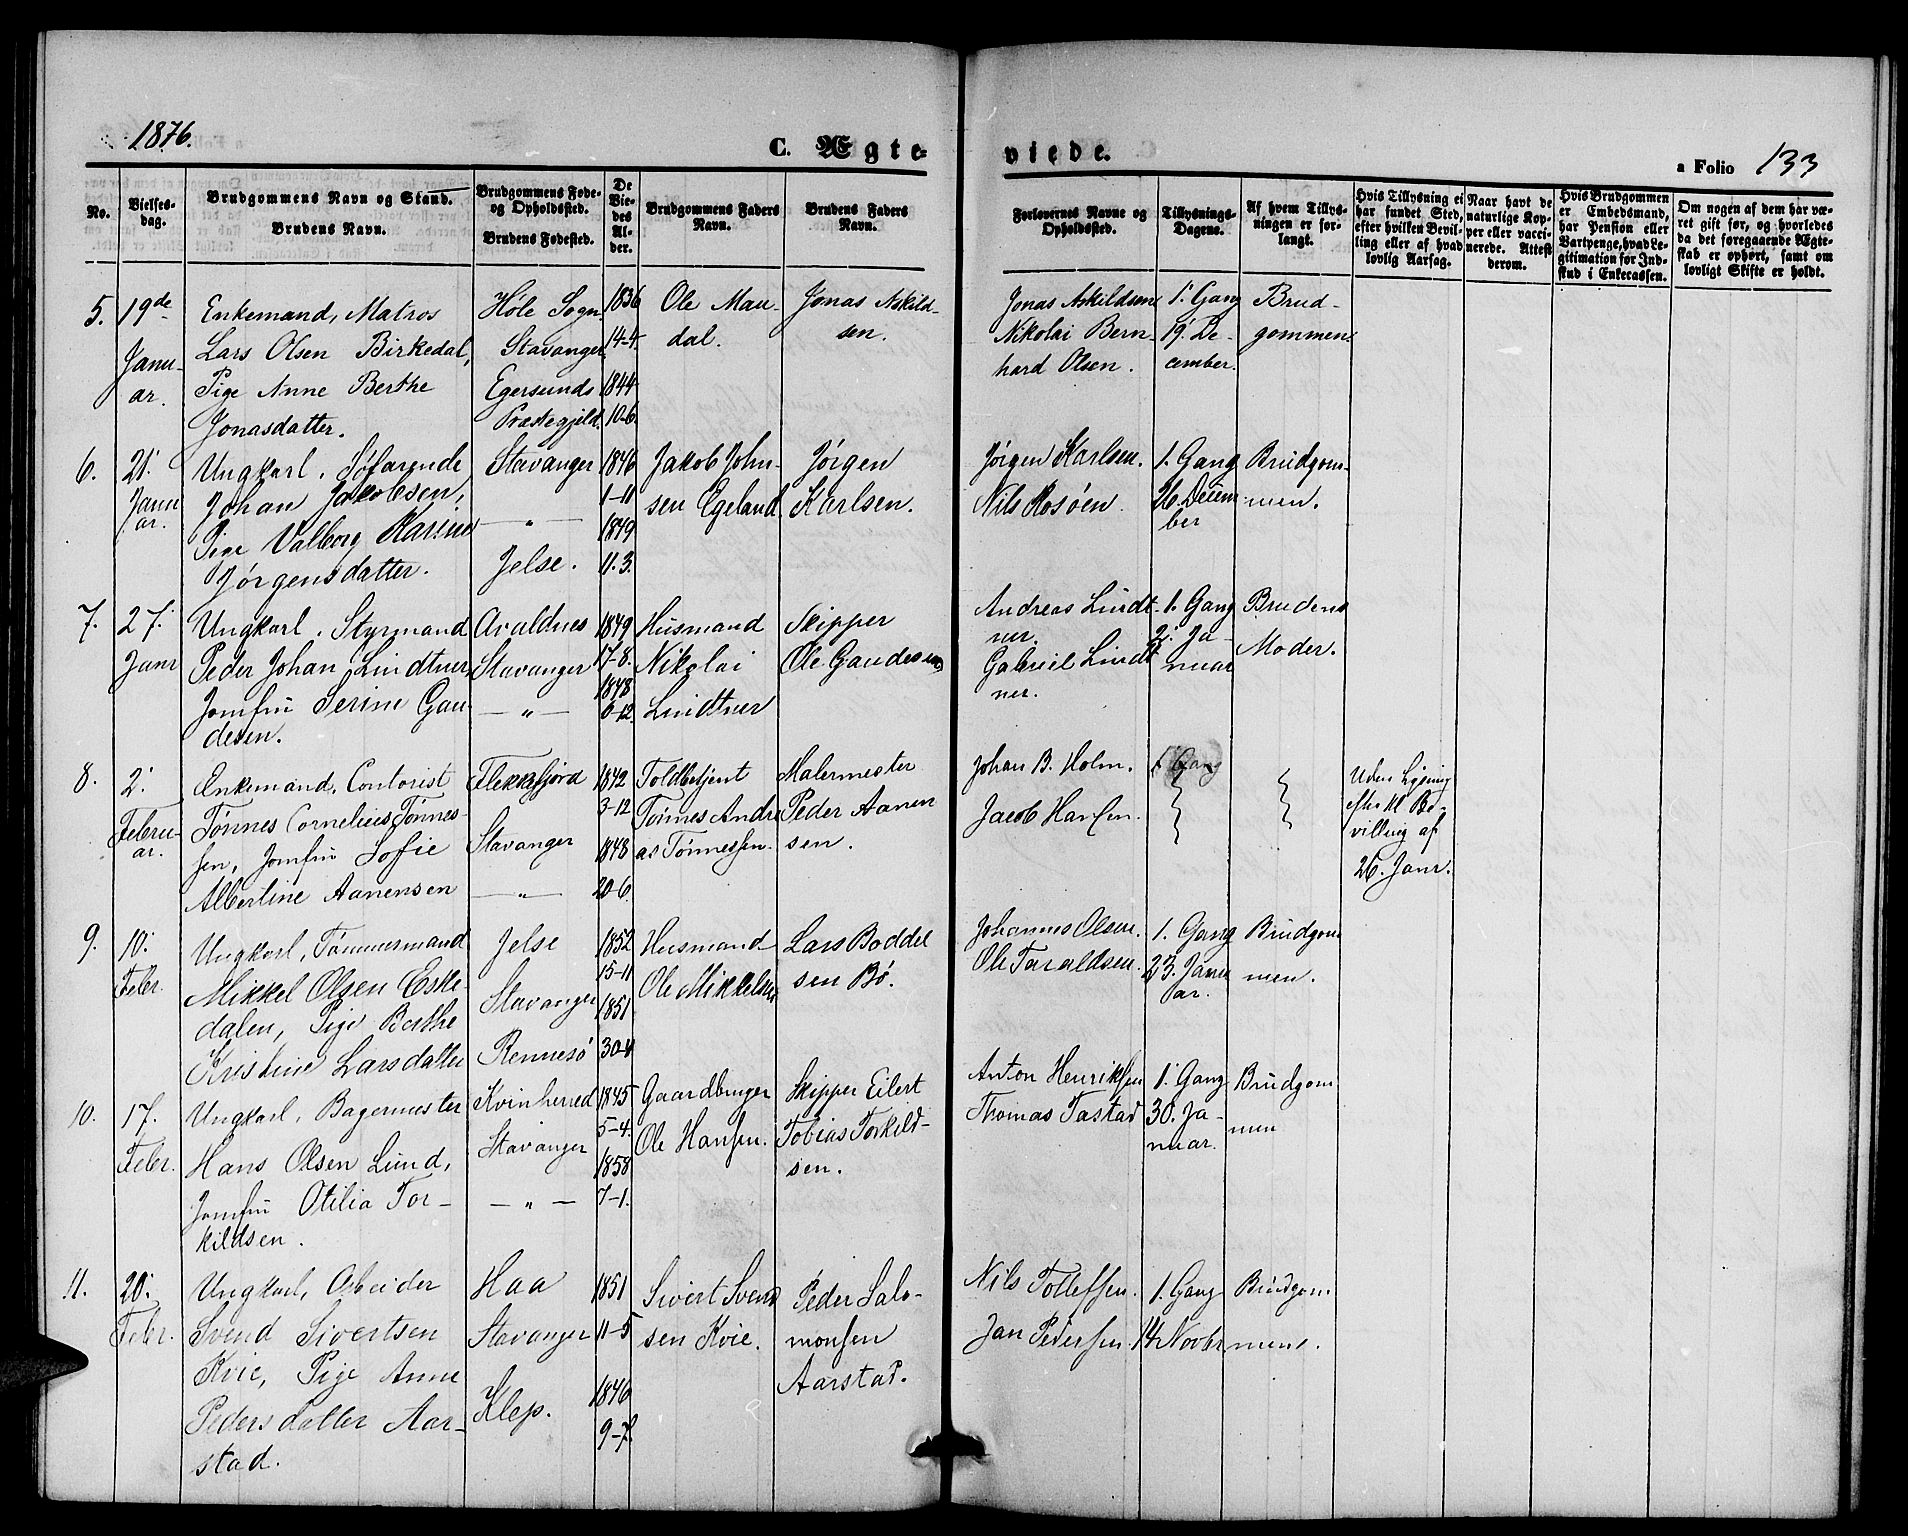 1876.
C. Ægte-
viede.
a Folio 133
No.
Vielses-
dag.
Brudgommens Navn og Stand.
Brudens Navn.
Brudgommens Føde-
og Opholdssted.
Brudens Fødested.
De
Vie-
des
Al-
der.
Brudgommens Faders
Navn.
Brudens Faders
Navn.
Forlovernes Navne og
Opholdssted.
Tillysnings-
Dagens.
Af hvem Tillys-
ningen er for-
langt.
Hvis Tillysning ei
har fundet Sted,
efter hvilken Bevil-
ling eller af hvad
lovlig Aarsag.
Naar havt de
naturlige Kop-
per eller vacci-
nerede. Attest
derom.
Hvis Brudgommen
er Embedsmand,
har Pension eller
Vartpenge, hvad Le-
gitimation for Ind-
skud i Enkecassen.
Om nogen af dem har væ-
ret gift før, og hvorledes
da det foregaaende Ægte-
skab er ophørt, samt om
lovligt Skifte er holdt.
5.
19de
Janu-
ar.
Enkemand, Matros
Lars Olsen Birkedal,
Pige Anne Berthe
Jonasdatter.
Høle Sogn.
Stavanger.
Egersunds
Præstegjeld.
1836
14-4.
1844
10-6.
Ole Mau-
dal.
Jonas Askild-
sen.
Jonas Askildsen
Nikolai Bern-
hard Olsen.
1. Gang
19. De-
cember.
Brud-
gommen.
6.
21.
Janu
ar.
Ungkarl, Søfarende
Johan Jakobsen,
Pige Valborg Karine
Jørgensdatter.
Stavanger
— „ —
Jelse.
1846
1-11
1849
11.3.
Jakob John-
sen Egeland
Jørgen
Karlsen.
Jørgen Karlsen.
Nils Rosøen.
1. Gang
26. Decem
ber
Brudgom-
men.
7.
27.
Janr
Ungkarl, Styrmand
Peder Johan Lindtner,
Jomfru Serine Gau-
desen.
Avaldnes
Stavanger
— „ —
1849
17-8.
1848
6-12.
Husmand
Nikolai
Lindtner
Skipper
Ole Gaudesen
Andreas Lindt-
ner.
Gabriel Lindt
ner.
1. Gang
2. Ja-
nuar
Brudens
Moder.
8.
2.
Februar
ar.
Enkemand, Contorist
Tønnes Cornelius Tønnes-
sen, Jomfru Sofie
Albertine Aanensen
Flekkefjord
Stavanger
— „ —
1842
3-12
1848
20-6.
Toldbetjent
Tønnes Andre
as Tønnessen.
Malermester
Peder Aanen
sen.
Johan B. Holm.
Jacob Hansen.
1. Gang
Uden Lysning
efter kl. Be-
villing af
26. Janr.
9.
10.
Febr.
Ungkarl, Tømmermand
Mikkel Olsen Eske-
dalen, Pige Berthe
Kristine Larsdatter
Jelse
Stavanger
Rennesø
1852
15-11
1851
30-4
Husmand
Ole Mikkelsen
Lars Boddel
sen Bø.
Johannes Olsen.
Ole Taraldsen.
1. Gang
23. Janu
ar.
Brudgom
men.
10.
17.
Febr.
Ungkarl, Bagermester
Hans Olsen Lund,
Jomfru Otilia Tor-
kildsen.
Kvinherred
Stavanger
— „ —
1845
5-4.
1858
7-1.
Gaardbruger
Ole Hansen.
Skipper Eilert
Tobias Torkild-
sen.
Anton Henriksen
Thomas Tastad
1. Gang
30. Ja-
nuar.
Brudgom
men
11.
20.
Febr.
Ungkarl, Arbeider
Svend Sivertsen
Kvie, Pige Anne
Pedersdatter Aar-
stad.
Haa
Stavanger
Klep.
1851
11-5
1846
9-7.
Sivert Svend
sen Kvie.
Peder Salo-
monsen
Aarstad.
Nils Tollefsen.
Jan Pedersen
1. Gang
14 Novbr
Brudgom
men.